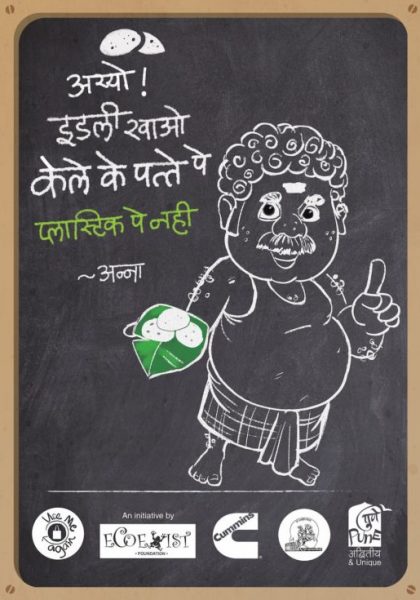 अय्यो !
इडली खाओ
केले के पत्ते पे
प्लास्टिक पे नही
~अन्ना
Use Me
again
An initiative by
ECOEXIST
FOUNDATION
Cummins
पुणे
PUNE
अद्वितीय
& Unique